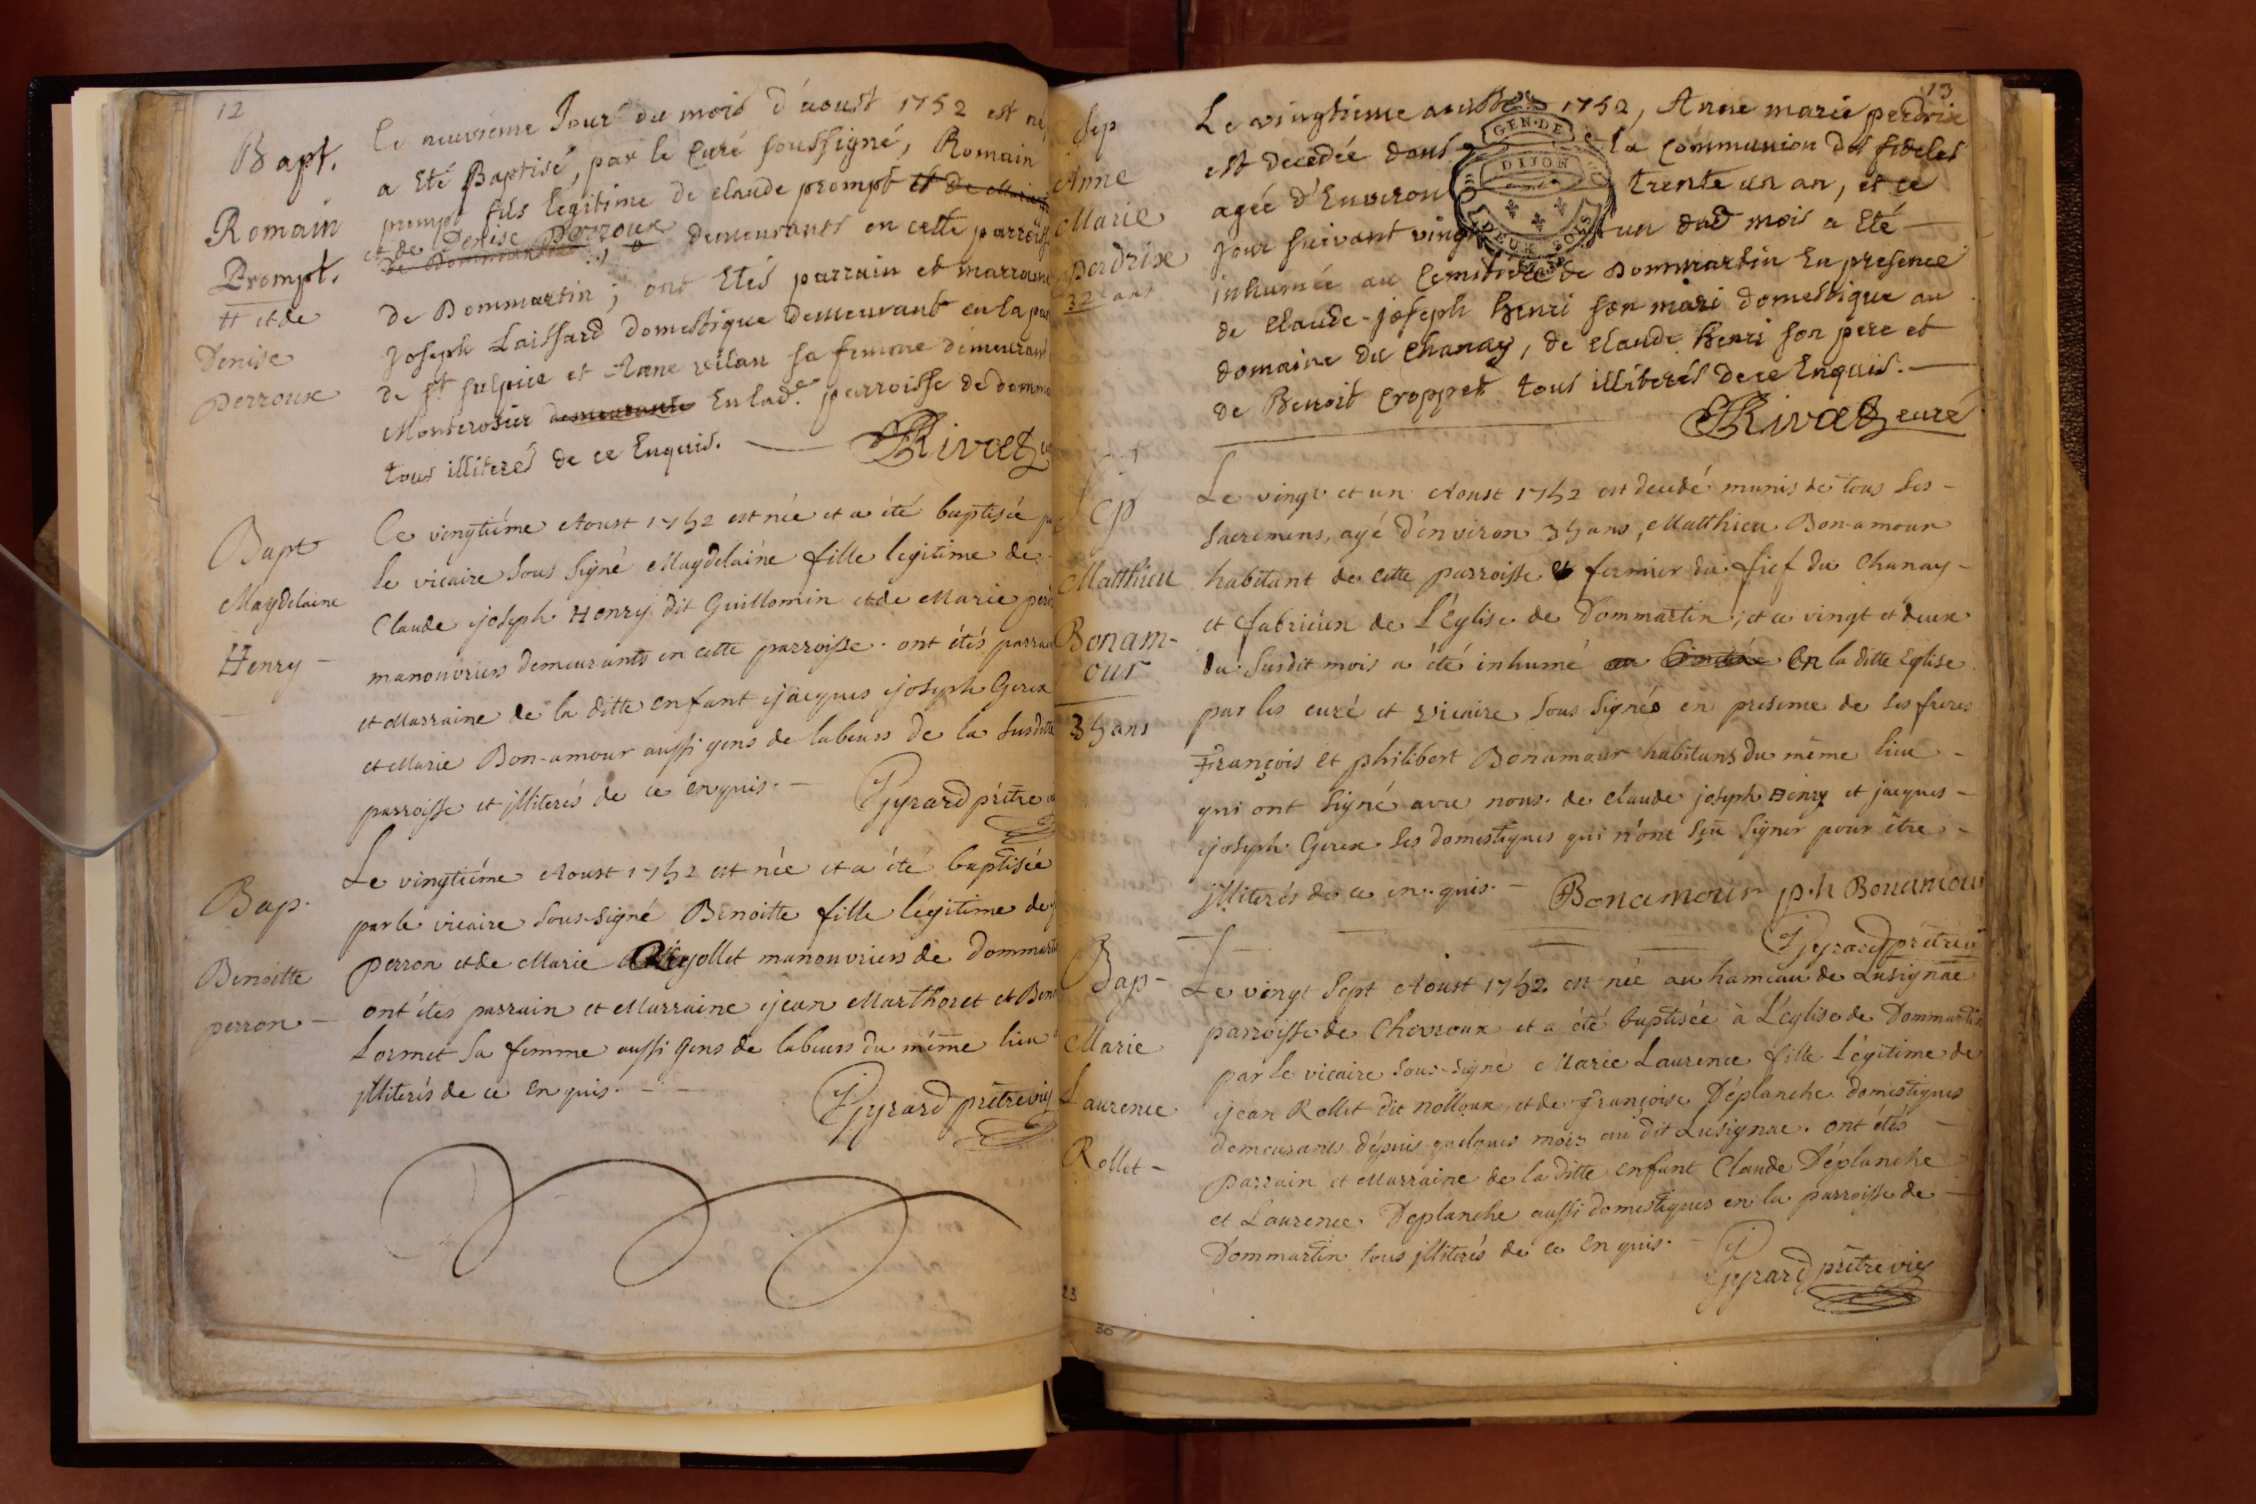 12
Bapt.
Romain
Prompt.
# et de
Denise
perroux
Le neuvieme Jour du mois d'aoust 1752 est né
a Eté Baptisé, par le Curé soussigné, Romain
prompt fils légitime de claude prompt et de
et de Denise perroux demeurants en cette parroisse
de Dommartin; ont Etés parrain et marraine
Joseph Laissard domestique demeurant en la
de St sulpice et Anne vilan sa femme demeurant
Monterosier demeurante En lad.e parroisse de domm
tous illiterés de ce Enquis. Rivet
Bapt
Magdelaine
Henry
Le vingtiéme Aoust 1752 est née et a été baptisée
le vicaire sous signé Magdelaine fille legitime de
Claude joseph Henry dit Guillomin et de Marie
manouvriers demeurants en cette parroisse. ont étés
et Marraine de la ditte enfant jacques joseph Gerex
et Marie Bon-amour aussi gens de labeurs de la susditte
parroisse et illiterés de ce enquis. Gyrard prêtre
Bap.
Benoitte
perron
Le vingtiéme Aoust 1752 est née et a été baptisée
par le vicaire sous-signé Benoitte fille légitime de
perron et de Marie manouvriers de Dommart
ont étés parrain et Marraine jean Marthoret et
Lormet sa femme aussi gens de labeurs du même lieu
illiterés de ce enquis. Gyrard prêtre vic
13
Sep
Anne
Marie
Perdrix
32 ans
Le vingtieme aoust 1752, Anne marie perdrix
est decedée dans la communion des fideles
GEN. DE
DIJON
DEUX SOLS
agée d'Environ trente un an, et ce
jour suivant vingt un dud mois a Eté
inhumée au Cemitiere de Dommartin En presence
de Claude-joseph henri son mari domestique au
domaine du Chanay, de claude henri son pere et
de Benoit croppet tous illiterés de ce Enquis.
Rivet curé
Sep
Matthieu
Bonam-
our
35 ans
Le vingt et un Aoust 1752 est decedé munis de tous ses
sacremens, agé d'environ 35 ans, Matthieu Bon-amour
habitant de cette parroisse et fermier du fief du Chanay
et fabricien de L'église de Dommartin; et ce vingt et deux
du susdit mois a été inhumé en la ditte Eglise
par les curé et vicaire sous signés en presence de ses freres
François et philibert Bonamour habitans du même lieu
qui ont signé avec nous. de claude joseph Henry et jacques
joseph Gerex ses domestiques qui n'ont sçu signer pour être
illiterés de ce en-quis. Bonamour p.h Bonamour
Gyrard prêtre vi
Bap-
Marie
Laurence
Rollet-
Le vingt sept Aoust 1752 est née au hameau de Lusignae
parroisse de Chevroux et a été baptisée à L'église de Dommartin
par le vicaire sous-signé Marie Laurence fille Légitime de
jean Rollet dit nolloux, et de Françoise Déplanche domestiques
demeurants depuis quelques mois au dit Lusignae. ont étés
Parrain et Marraine de la ditte enfant Claude Déplanche
et Laurence Déplanche aussi domestiques en la parroisse de
Dommartin tous illiterés de ce enquis.
Gyrard prêtre vic
23
30